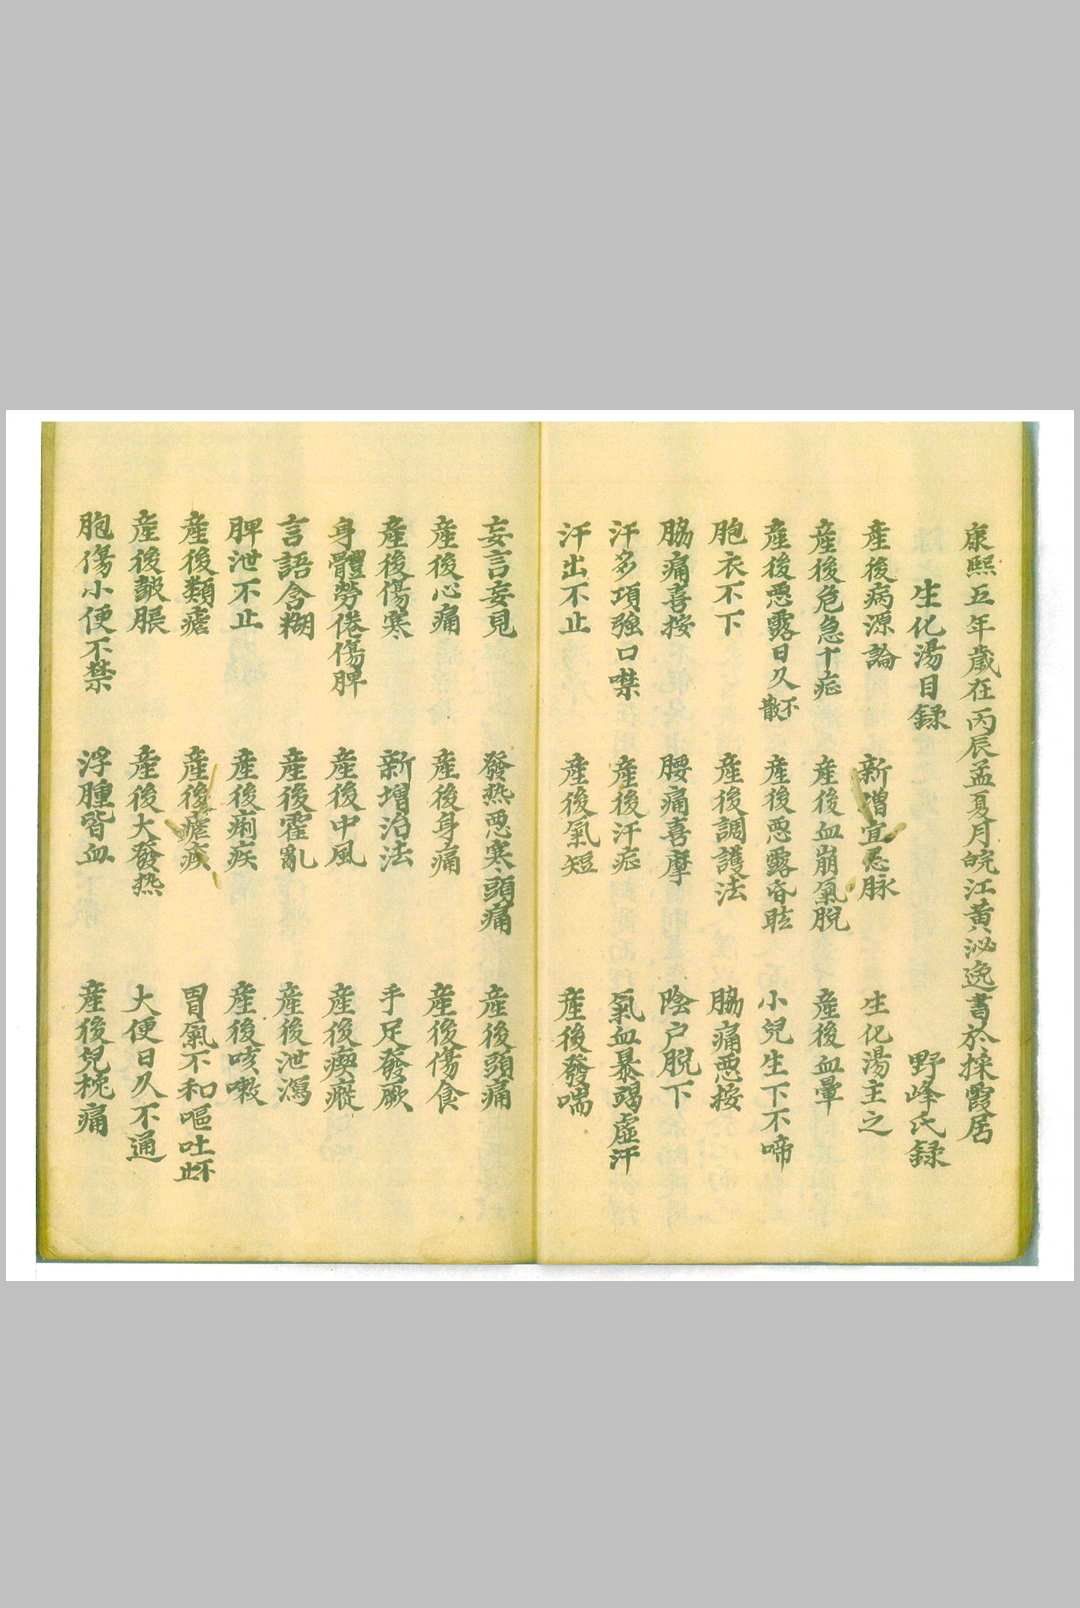 康熙五年歲在丙辰孟夏月皖江黃泌逸書於採霞居
生化湯目録 野峰氏録
産後病源論 新增宜忌脉 生化湯主之
産後危急十症 産後血崩氣脫 産後血暈
産後惡露日久不散 産後惡露昏眩 小兒生下不啼
胞衣不下 産後調護法 脇痛惡按
脇痛喜按 腰痛喜摩 陰户脫下
汗多項強口噤 産後汗症 氣血暴竭虛汗
汗出不止 産後氣短 産後發喘
妄言妄見 發热惡寒頭痛 産後頭痛
産後心痛 産後身痛 産後傷食
産後傷寒 新增治法 手足發厥
身體勞倦傷脾 産後中風 産後瘈瘲
言語含糊 産後霍亂 産後泄瀉
脾泄不止 産後痢疾 産後咳嗽
産後類瘧 産後瘧疾 胃氣不和嘔吐不止
産後皷脹 産後大發热 大便日久不通
胞傷小便不禁 浮腫皆血 産後兒枕痛